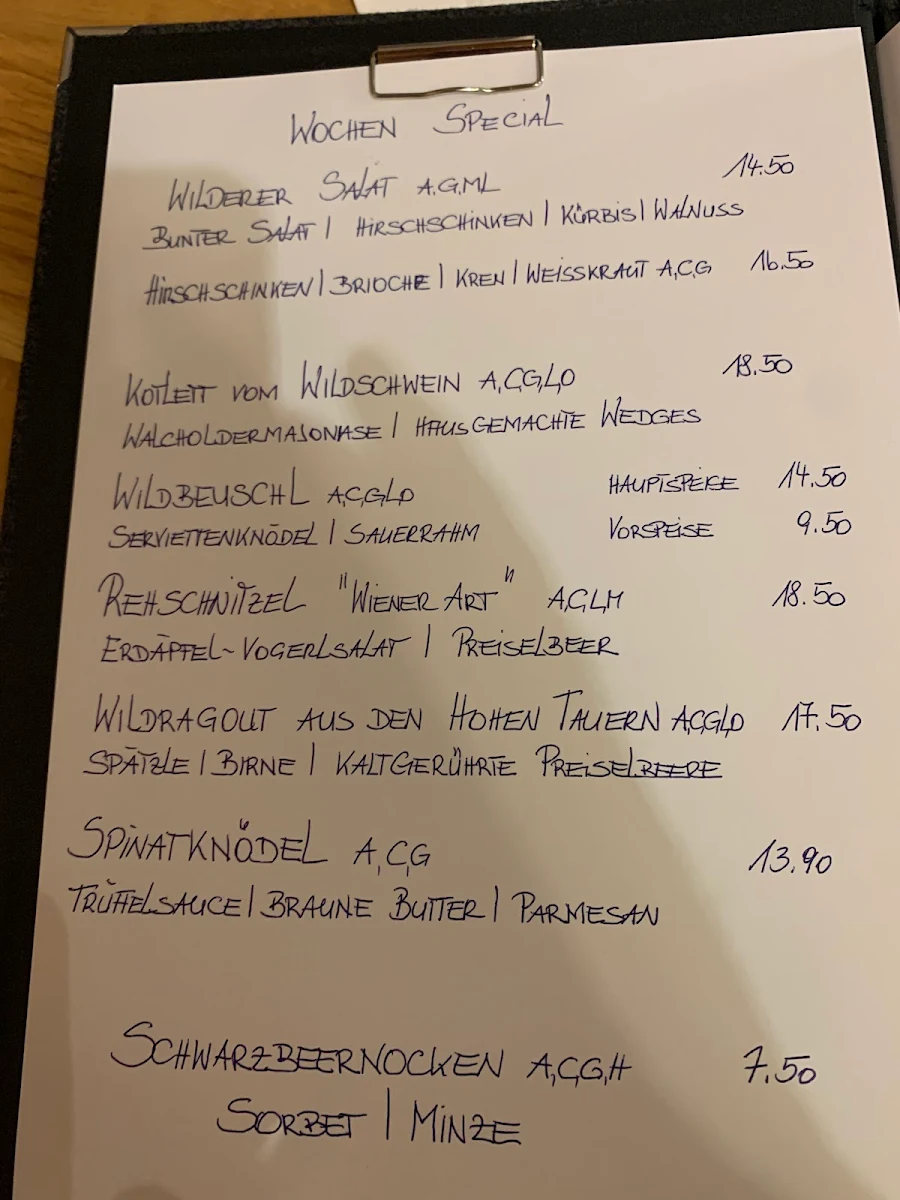 WOCHEN SPECIAL
WILDERER SALAT A,G,M,L 14.50
BUNTER SALAT | HIRSCHSCHINKEN | KÜRBIS | WALNUSS
HIRSCHSCHINKEN | BRIOCHE | KREN | WEISSKRAUT A,C,G 16.50
KOTLETT VOM WILDSCHWEIN A,C,G,L,O 18.50
WALCHOLDERMAJONASE | HAUSGEMACHTE WEDGES
WILDBEUSCHL A,C,G,L,O HAUPTSPEISE 14.50
SERVIETTENKNÖDEL | SAUERRAHM VORSPEISE 9.50
REHSCHNITZEL "WIENER ART" A,G,L,M 18.50
ERDÄPFEL~VOGERLSALAT | PREISELBEER
WILDRAGOUT AUS DEN HOHEN TAUERN A,C,G,L,O 17.50
SPÄTZLE | BIRNE | KALTGERÜHRTE PREISELBEERE
SPINATKNÖDEL A,C,G 13.90
TRÜFFELSAUCE | BRAUNE BUTTER | PARMESAN
SCHWARZBEERNOCKEN A,C,G,H 7.50
SORBET | MINZE